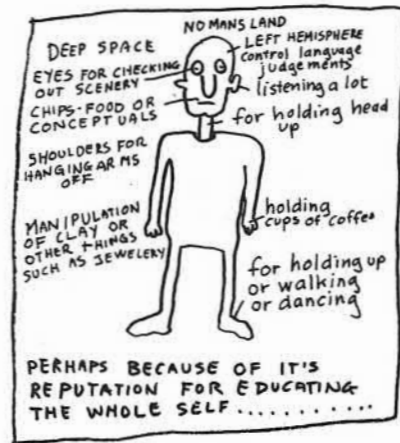 NO MANS LAND
DEEP SPACE
LEFT HEMISPHERE
control language
judgements
EYES FOR CHECKING
OUT SCENERY
listening a lot
CHIPS-FOOD OR
CONCEPTUALS
for holding head
up
SHOULDERS FOR
HANGING ARMS
OFF
MANIPULATION
OF CLAY OR
OTHER THINGS
SUCH AS JEWELERY
holding
cups of coffee
for holding up
or walking
or dancing
PERHAPS BECAUSE OF IT'S
REPUTATION FOR EDUCATING
THE WHOLE SELF..........